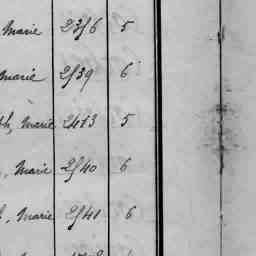 Marie 2356 5
Marie 2539 6
Marie 2413 5
, Marie 2540 6
, Marie 2541 6